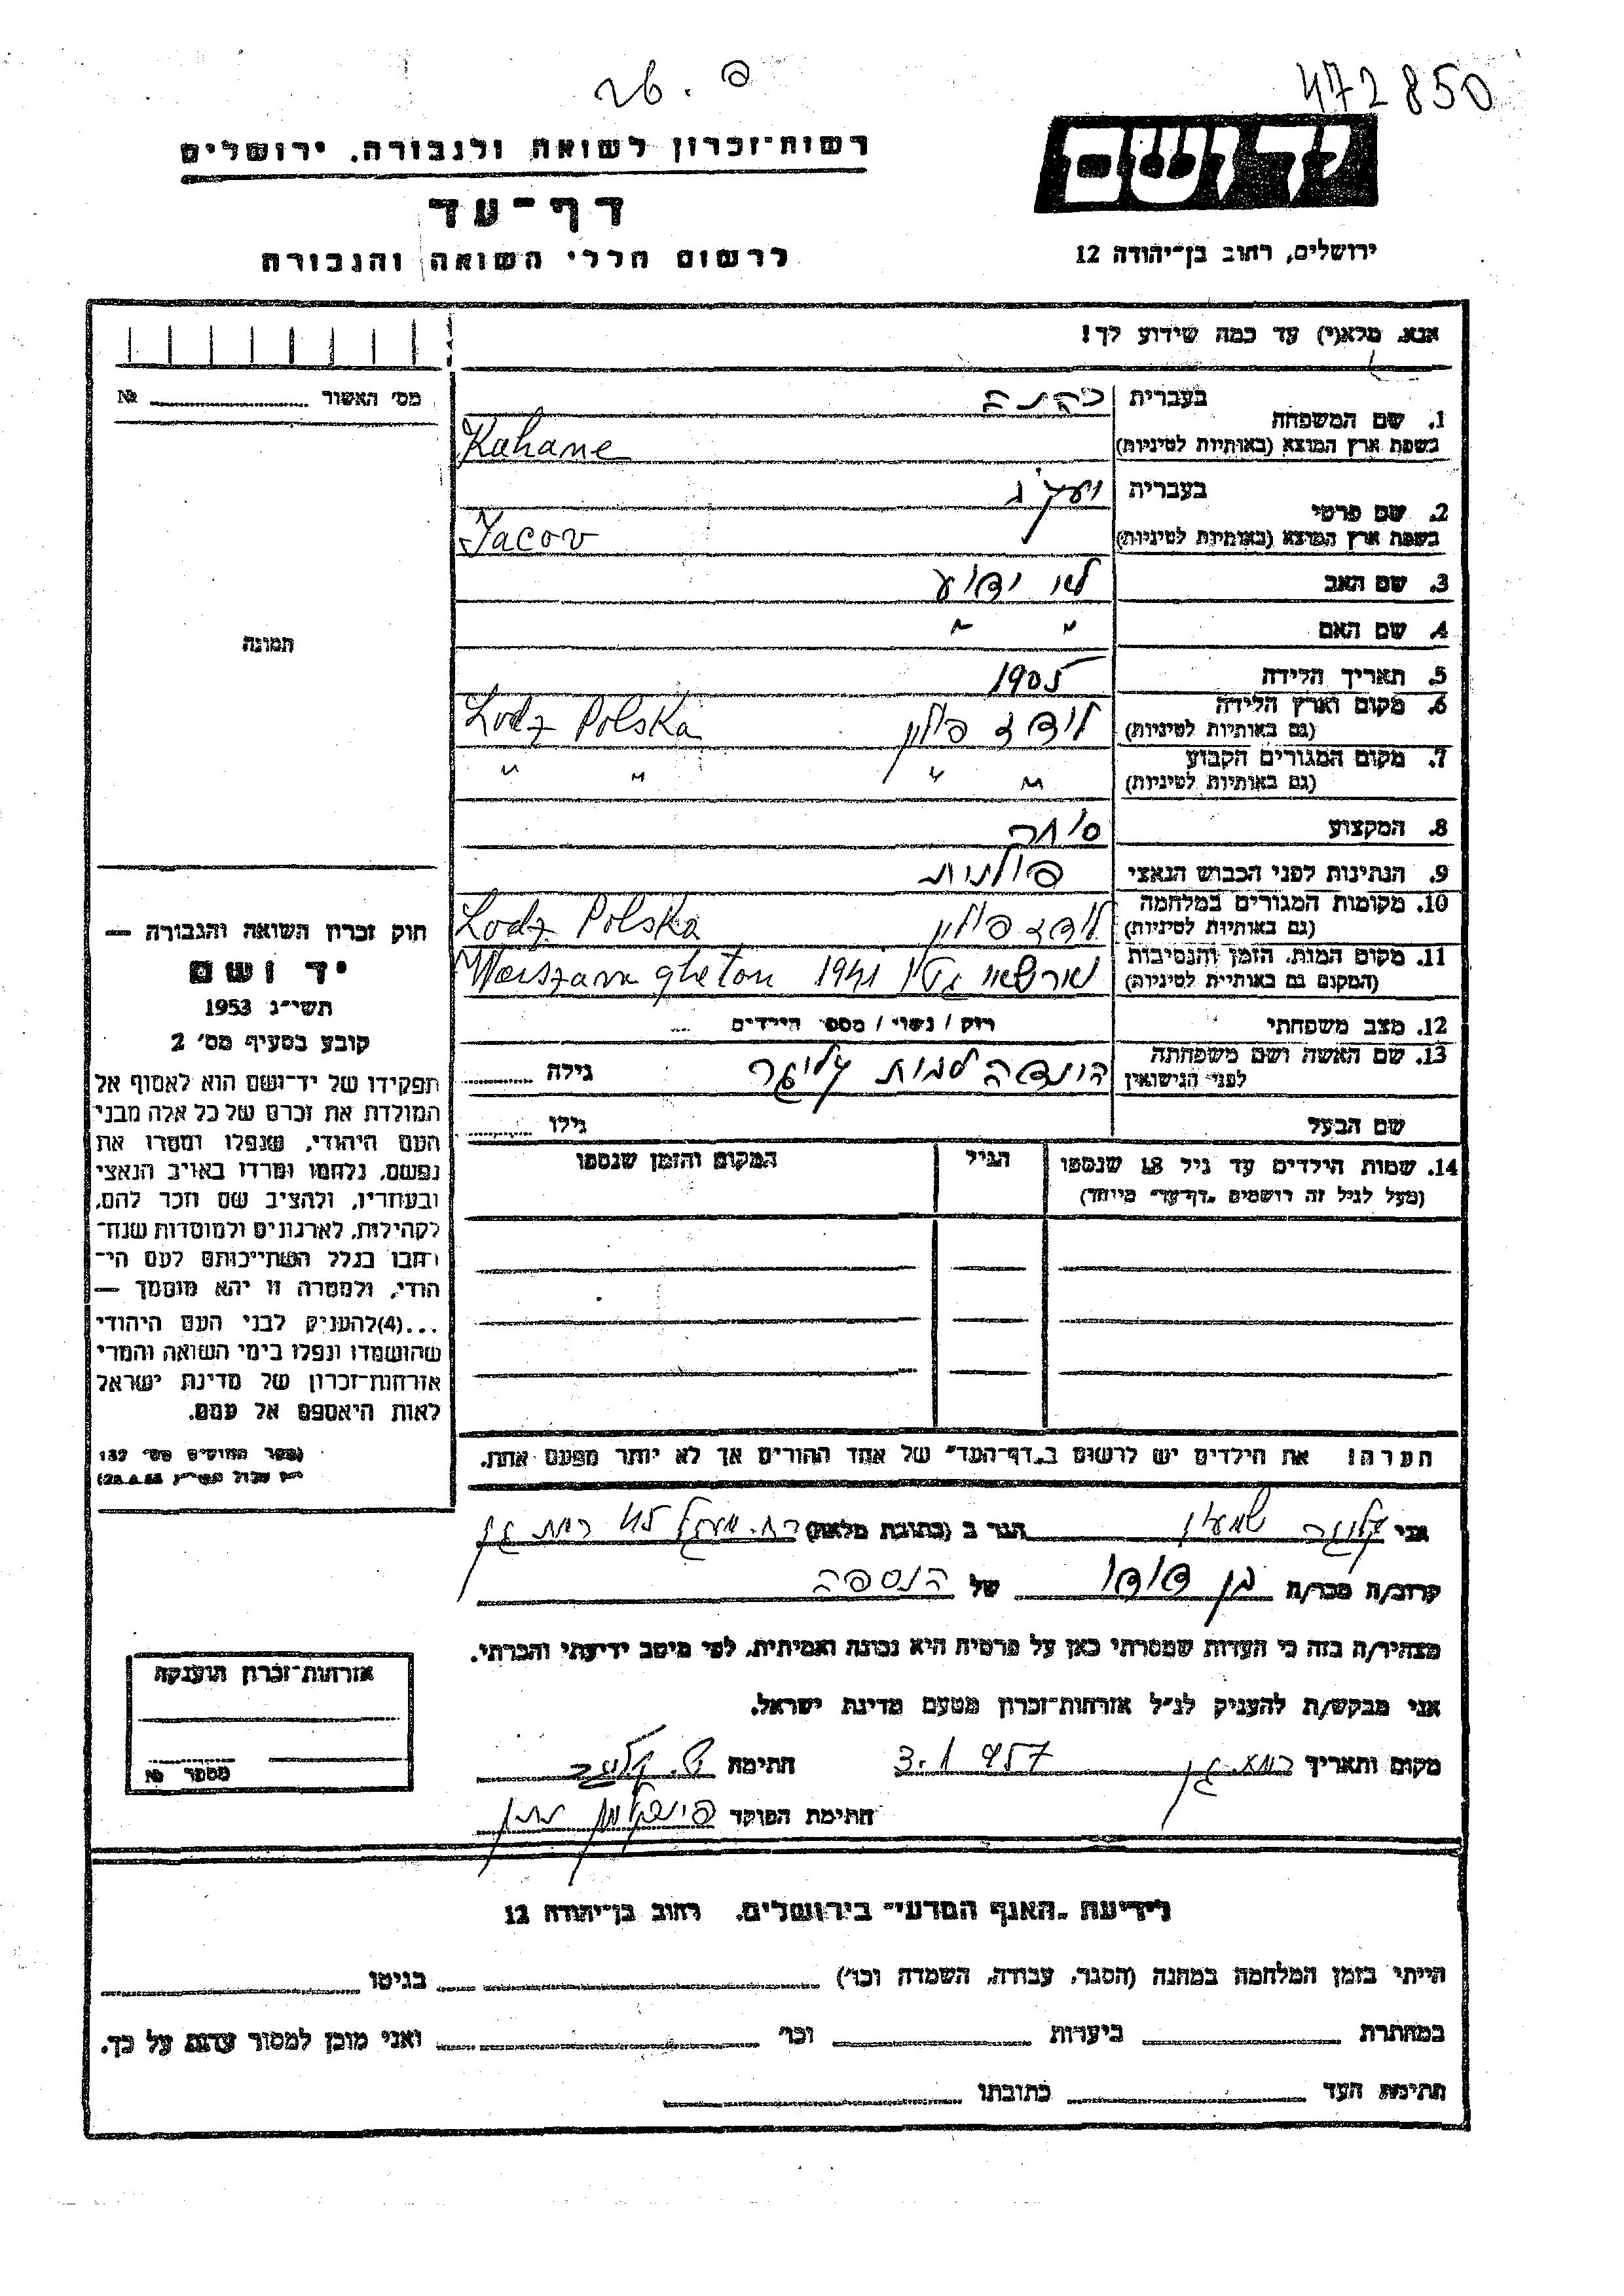 472850
רשות־זכרון לשואה ולגבורה. ירושלים
דף־עד
לרשום חללי השואה והגבורה
יד ושם
ירושלים, רחוב בן־יהודה 12
אנא, מלא(י) עד כמה שידוע לך!
מס׳ האשור № 
1. שם המשפחה
בעברית כהנה
בשפת ארץ המוצא (באותיות לטיניות) Kahane
2. שם פרטי
בעברית יעקב
בשפת ארץ המוצא (באותיות לטיניות) Jacov
3. שם האב לא ידוע
4. שם האם " "
5. תאריך הלידה 1905
6. מקום וארץ הלידה לודז פולין Lodz Polska
(גם באותיות לטיניות)
7. מקום המגורים הקבוע " " " "
(גם באותיות לטיניות)
8. המקצוע סוחר
9. הנתינות לפני הכבוש הנאצי פולנית
10. מקומות המגורים במלחמה לודז פולין Lodz Polska
(גם באותיות לטיניות)
11. מקום המות, הזמן והנסיבות 1941 Warszawa gheton
(המקום גם באותיות לטיניות)
12. מצב משפחתי רוק / נשוי / מספר הילדים ...
13. שם האשה ושם משפחתה לבית גילה
לפני הנישואין
שם הבעל גילו
14. שמות הילדים עד גיל 18 שנספו הגיל המקום והזמן שנספו
(מעל לגיל זה רושמים „דף־עד״ מיוחד)
הערה! את הילדים יש לרשום ב„דף־העד״ של אחד ההורים אך לא יותר מפעם אחת.
תמונה
חוק זכרון השואה והגבורה —
יד ושם
תשי״ג 1953
קובע בסעיף מס׳ 2
תפקידו של יד־ושם הוא לאסוף אל
המולדת את זכרם של כל אלה מבני
העם היהודי, שנפלו ומסרו את
נפשם, נלחמו ומרדו באויב הנאצי
ובעוזריו, ולהציב שם וזכר להם,
לקהילות, לארגונים ולמוסדות שנח־
רחבו בגלל השתייכותם לעם הי־
הודי, ולמטרה זו יהא מוסמך —
...(4)להעניק לבני העם היהודי
שהושמדו ונפלו בימי השואה והמרי
אזרחות־זכרון של מדינת ישראל
לאות היאספם אל עמם.
אני שמעון הגר ב (כתובת מלאה) רמת גן
קרוב/ה מכר/ה בן דודו של הנספה
מצהיר/ה בזה כי העדות שמסרתי כאן על פרטיה היא נכונה ואמיתית, לפי מיטב ידיעתי והכרתי.
אני מבקש/ת להעניק לנ״ל אזרחות־זכרון מטעם מדינת ישראל.
מקום ותאריך רמת גן 3.1.957 חתימה
חתימת הפוקד
אזרחות־זכרון הוענקה
מספר №
לידיעת „האגף המדעי״ בירושלים. רחוב בן־יהודה 12
הייתי בזמן המלחמה במחנה (הסגר, עבודה, השמדה וכו׳) בגיטו
במחתרת ביערות וכו׳ ואני מוכן למסור עדות על כך.
חתימת העד כתובתו